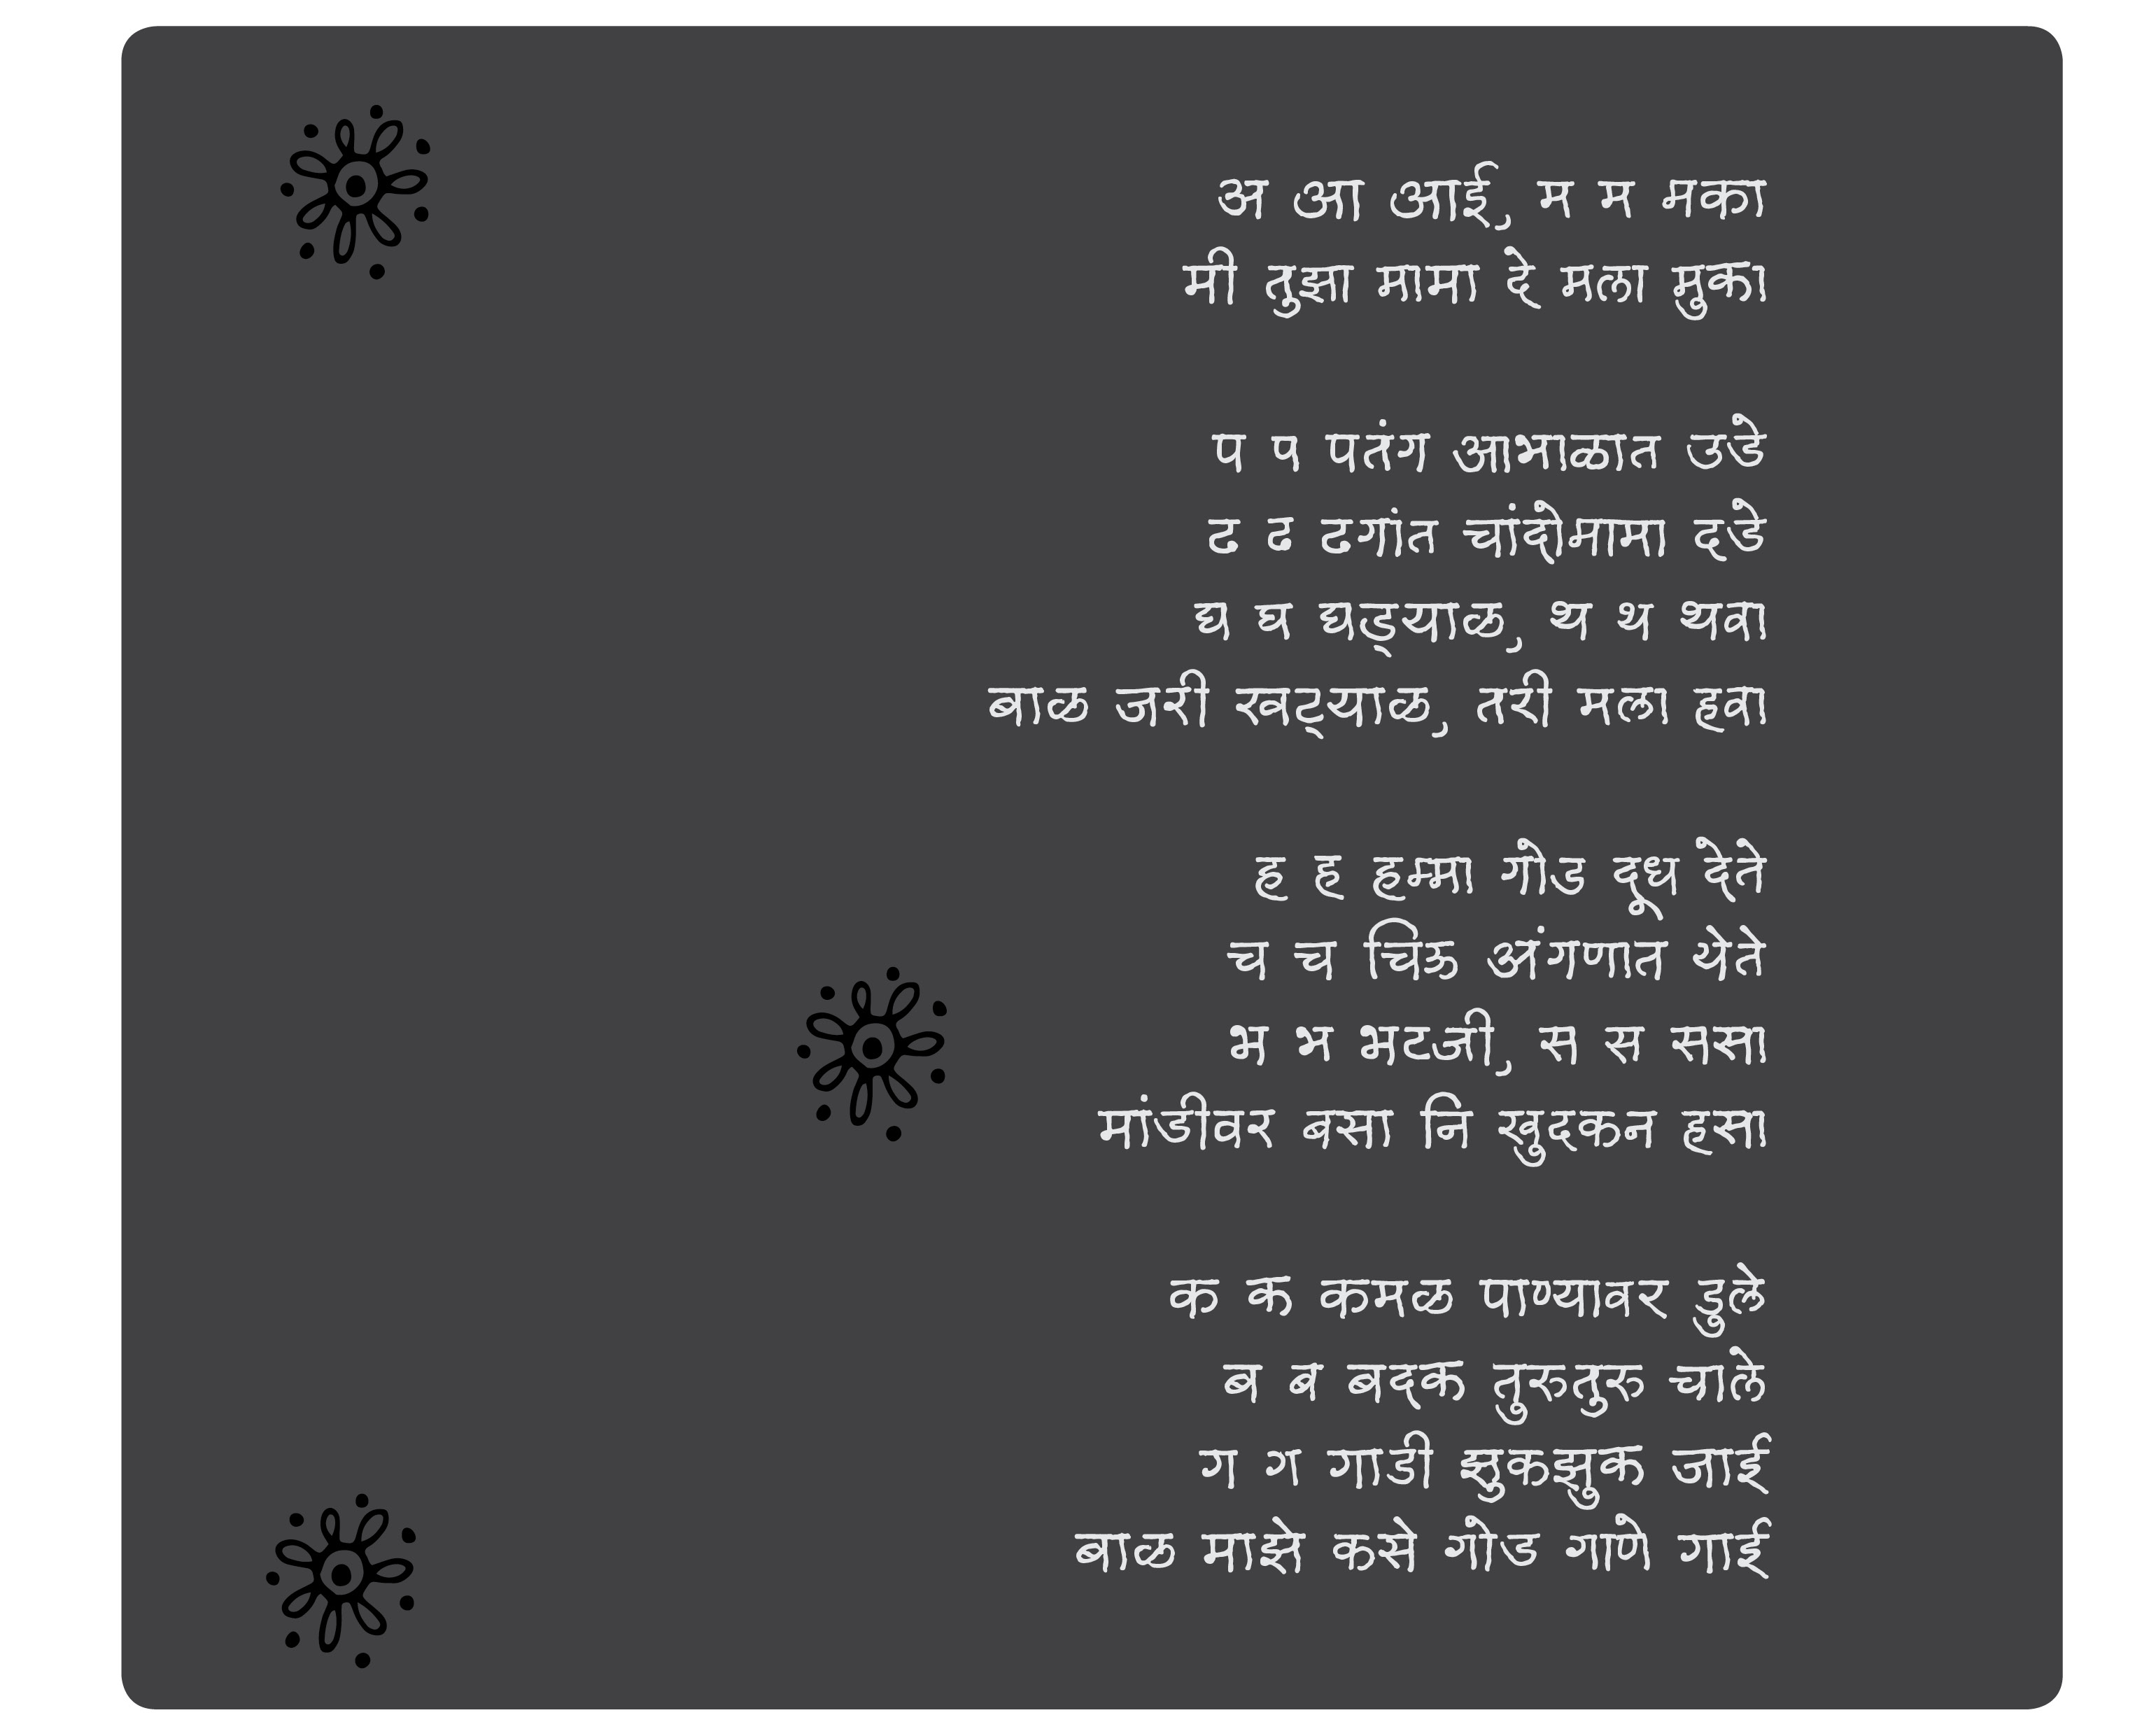 अ आ आई, म म मका
मी तुझा मामा दे मला मुका
प प पतंग आभाळात उडे
ढ ढ ढगांत चांदोमामा दडे
घ घ घड्याळ, थ थ थवा
बाळ जरी खट्याळ, तरी मला हवा
ह ह हम्मा गोड दूध देते
च च चिऊ अंगणात येते
भ भ भटजी, स स ससा
मांडीवर बसा नि खुदकन हसा
क क कमळ पाण्यावर डुले
ब ब बदक तुरुतुरु चाले
ग ग गाडी झुकझुक जाई
बाळ माझे कसे गोड गाणे गाई